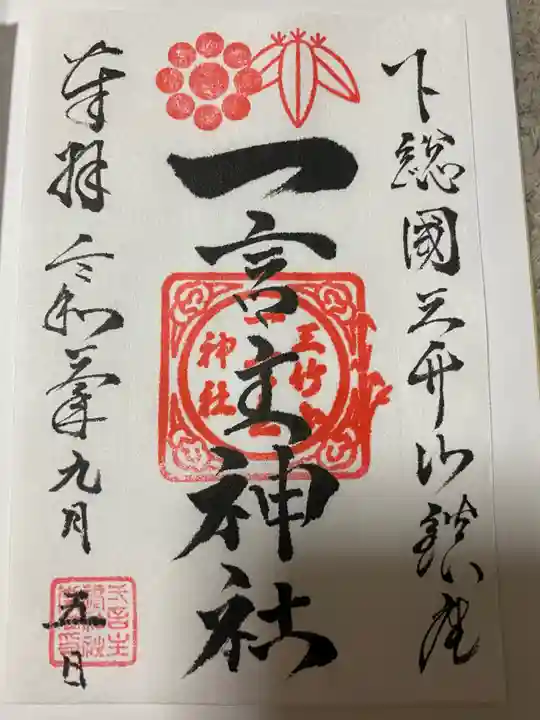 下総國三竹山鎮座
一言主神社
三竹山
神社
奉拝 令和 年九月
五日